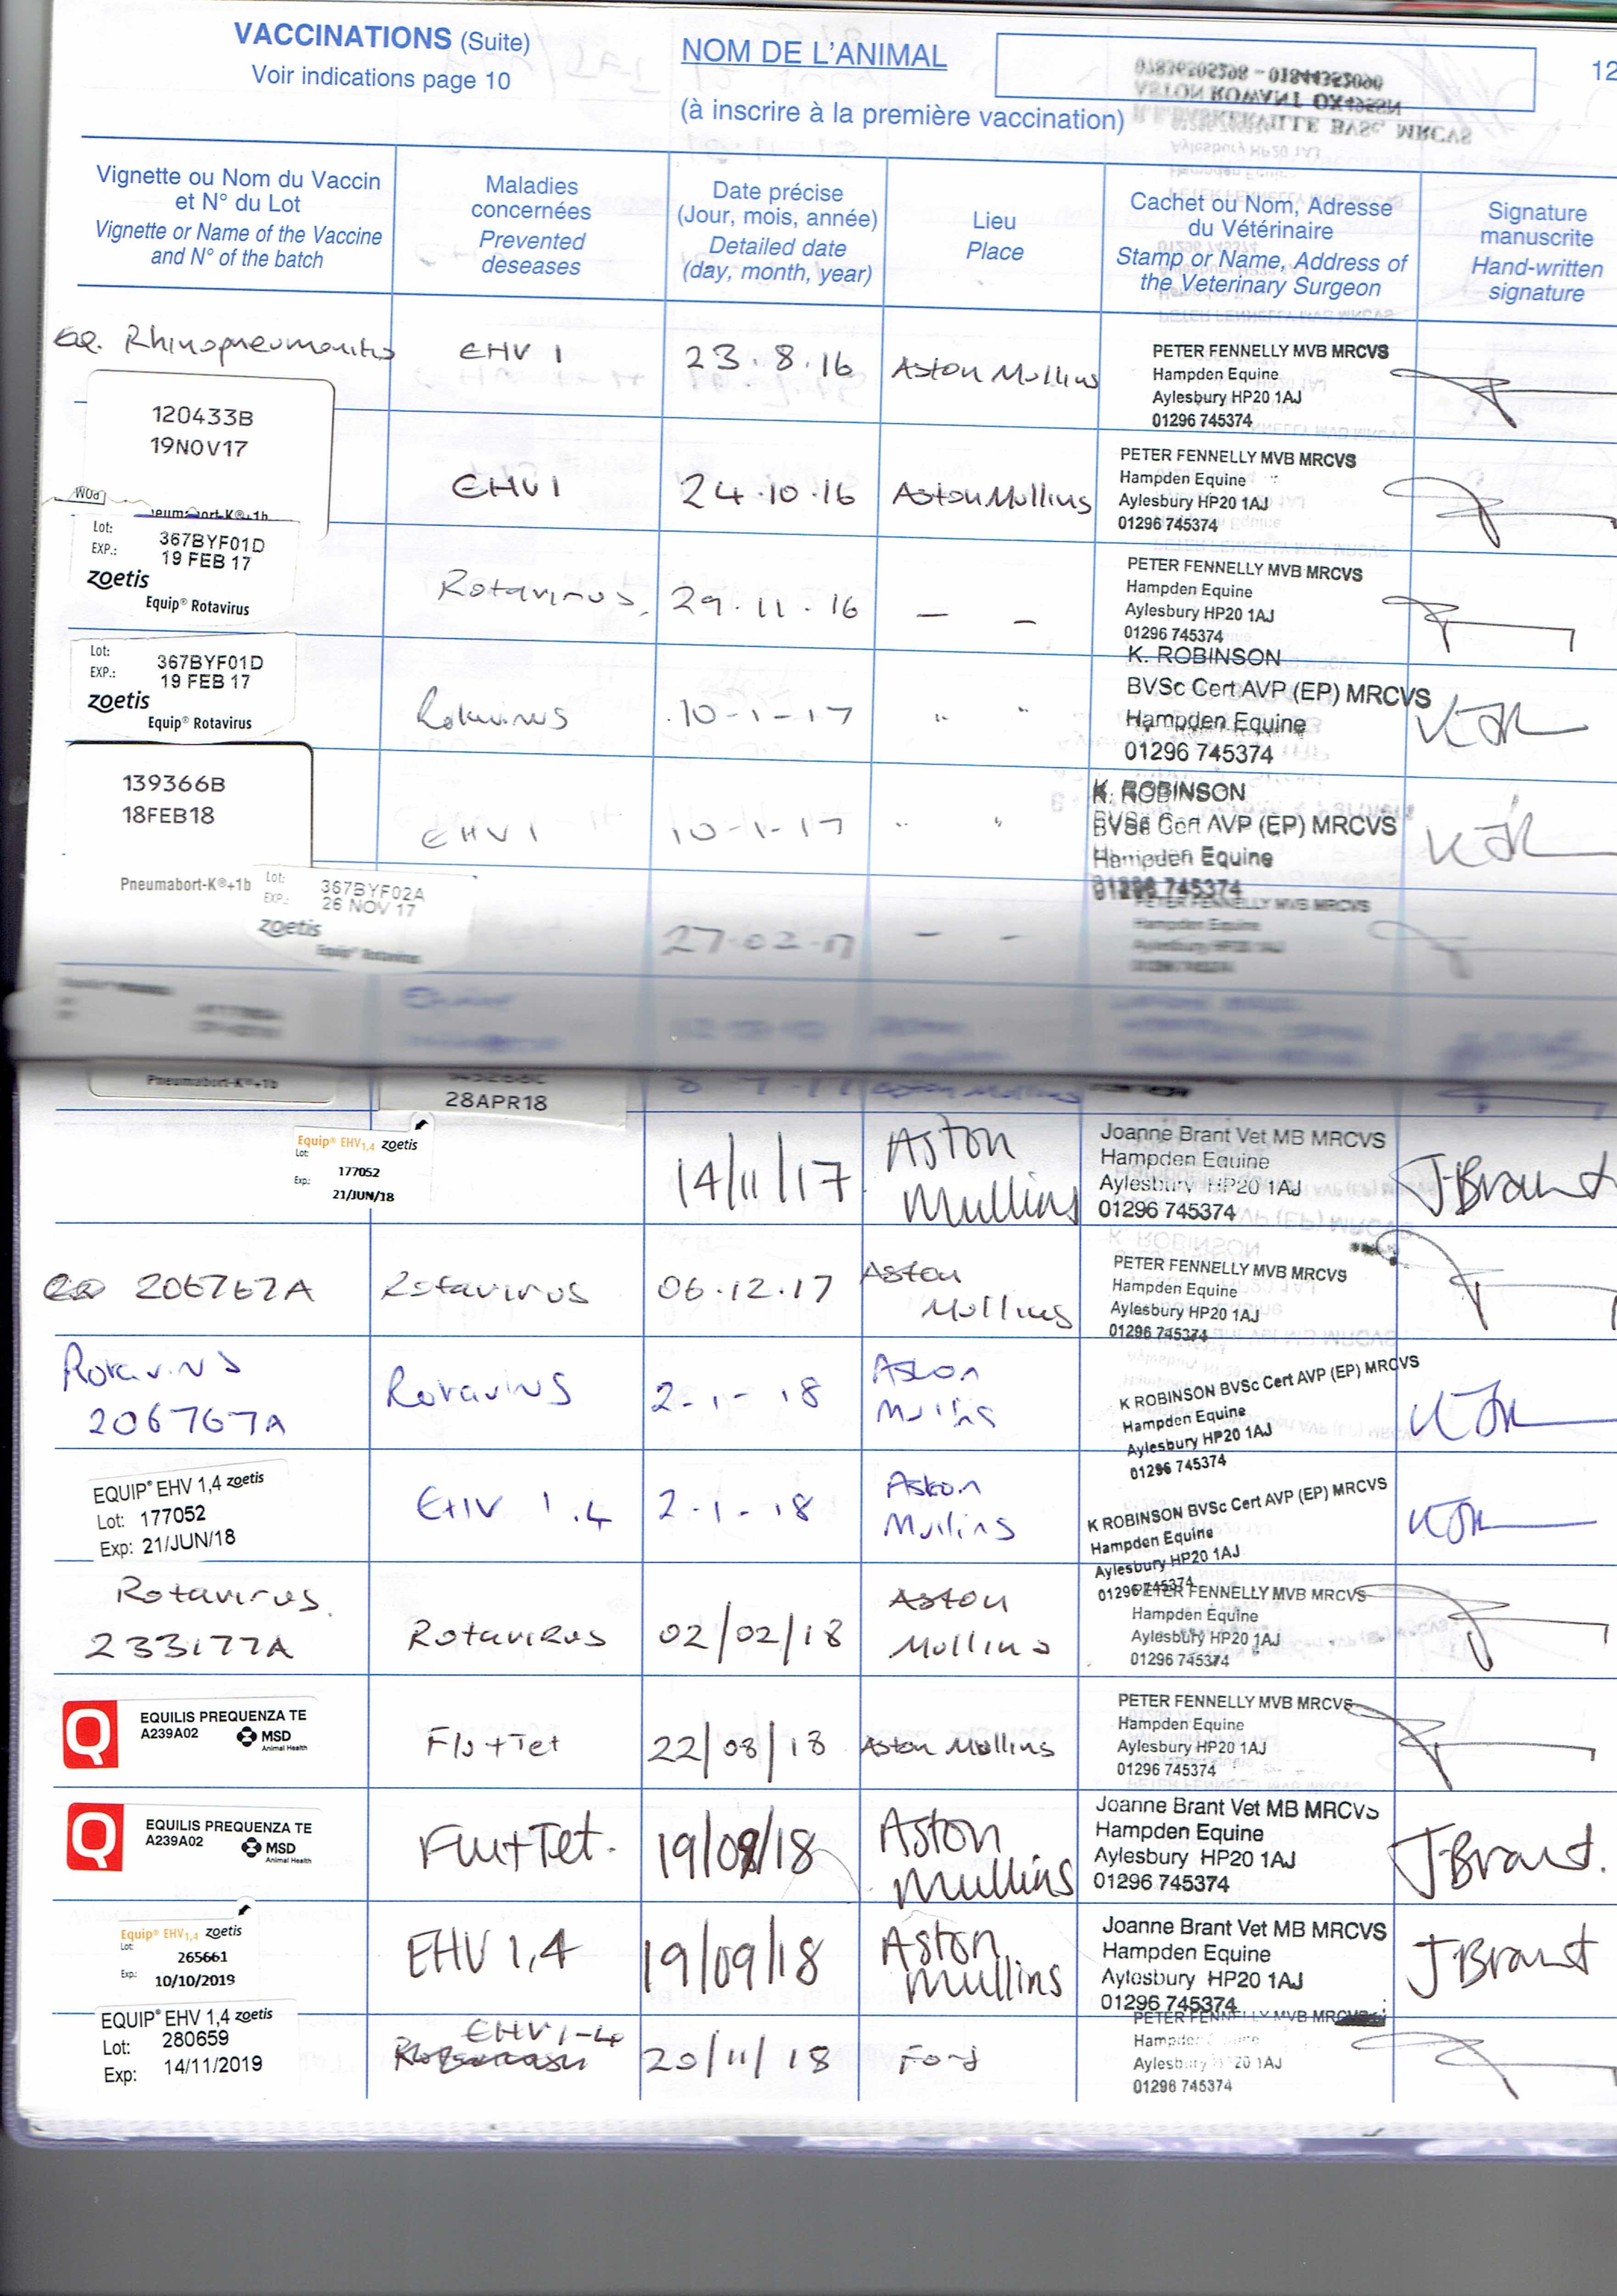 VACCINATIONS (Suite)
Voir indications page 10
NOM DE L'ANIMAL
(à inscrire à la première vaccination)
12
07836505298 - 01844352090
ASTON ROWANT OX495SN
R.E BASKERVILLE BVSc, MRCVS
Vignette ou Nom du Vaccin
et N° du Lot
Vignette or Name of the Vaccine
and N° of the batch
Maladies
concernées
Prevented
deseases
Date précise
(Jour, mois, année)
Detailed date
(day, month, year)
Lieu
Place
Cachet ou Nom, Adresse
du Vétérinaire
Stamp or Name, Address of
the Veterinary Surgeon
Signature
manuscrite
Hand-written
signature
EQ. Rhinopneumonitis
EHV 1
23.8.16
Aston Mullins
PETER FENNELLY MVB MRCVS
Hampden Equine
Aylesbury HP20 1AJ
01296 745374
120433B
19NOV17
POM
Pneumabort-K®+1b
EHV1
24.10.16
Aston Mullins
PETER FENNELLY MVB MRCVS
Hampden Equine
Aylesbury HP20 1AJ
01296 745374
Lot: 367BYF01D
EXP.: 19 FEB 17
zoetis
Equip® Rotavirus
Rotavirus.
29.11.16
— —
PETER FENNELLY MVB MRCVS
Hampden Equine
Aylesbury HP20 1AJ
01296 745374
Lot: 367BYF01D
EXP.: 19 FEB 17
zoetis
Equip® Rotavirus
Rotavirus
10-1-17
" "
K. ROBINSON
BVSc Cert AVP (EP) MRCVS
Hampden Equine
01296 745374
139366B
18FEB18
Pneumabort-K®+1b
EHV1
10-1-17
" "
K. ROBINSON
BVSc Cert AVP (EP) MRCVS
Hampden Equine
01296 745374
Lot: 367BYF02A
EXP.: 26 NOV 17
zoetis
Equip® Rotavirus
27.02.17
— —
PETER FENNELLY MVB MRCVS
Hampden Equine
Aylesbury HP20 1AJ
Pneumabort-K®+1b
28APR18
Aston Mullins
Equip® EHV1,4 zoetis
Lot: 177052
Exp: 21/JUN/18
14/11/17
Aston
Mullins
Joanne Brant Vet MB MRCVS
Hampden Equine
Aylesbury HP20 1AJ
01296 745374
J Brant
206767A
Rotavirus
06.12.17
Aston
Mullins
PETER FENNELLY MVB MRCVS
Hampden Equine
Aylesbury HP20 1AJ
01296 745374
Rotavirus
206767A
Rotavirus
2-1-18
Aston
Mullins
K ROBINSON BVSc Cert AVP (EP) MRCVS
Hampden Equine
Aylesbury HP20 1AJ
01296 745374
EQUIP® EHV 1,4 zoetis
Lot: 177052
Exp: 21/JUN/18
EHV 1.4
2-1-18
Aston
Mullins
K ROBINSON BVSc Cert AVP (EP) MRCVS
Hampden Equine
Aylesbury HP20 1AJ
01296 745374
Rotavirus.
233177A
Rotavirus
02/02/18
Aston
Mullins
PETER FENNELLY MVB MRCVS
Hampden Equine
Aylesbury HP20 1AJ
01296 745374
Q
EQUILIS PREQUENZA TE
A239A02
MSD
Animal Health
Flu+Tet
22/08/18
Aston Mullins
PETER FENNELLY MVB MRCVS
Hampden Equine
Aylesbury HP20 1AJ
01296 745374
Q
EQUILIS PREQUENZA TE
A239A02
MSD
Animal Health
Flu+Tet.
19/09/18
Aston
Mullins
Joanne Brant Vet MB MRCVS
Hampden Equine
Aylesbury HP20 1AJ
01296 745374
J Brant.
Equip® EHV1,4 zoetis
Lot: 265661
Exp: 10/10/2019
EHV 1,4
19/09/18
Aston
Mullins
Joanne Brant Vet MB MRCVS
Hampden Equine
Aylesbury HP20 1AJ
01296 745374
J Brant
EQUIP® EHV 1,4 zoetis
Lot: 280659
Exp: 14/11/2019
EHV 1-4
20/11/18
Ford
PETER FENNELLY MVB MRCVS
Hampden Equine
Aylesbury HP20 1AJ
01296 745374